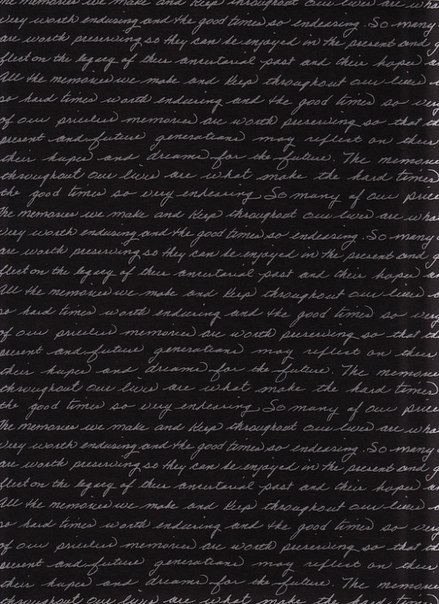 the memories we make and keep throughout our lives are wha
very worth enduring and the good times so endearing. So many
are worth preserving so they can be enjoyed in the present and g
flect on the legacy of their ancestorial past and their hopes a
All the memories we make and keep throughout our lives
so hard times worth enduring and the good times so very
of our priceless memories are worth preserving so that th
present and future generations may reflect on their
their hopes and dreams for the future. The memories
throughout our lives are what make the hard times
the good times so very endearing So many of our price
the memories we make and keep throughout our lives are wha
very worth enduring and the good times so endearing. So many
are worth preserving so they can be enjoyed in the present and g
flect on the legacy of their ancestorial past and their hopes a
All the memories we make and keep throughout our lives
so hard times worth enduring and the good times so very
of our priceless memories are worth preserving so that th
present and future generations may reflect on their
their hopes and dreams for the future. The memories
throughout our lives are what make the hard times
the good times so very endearing So many of our price
the memories we make and keep throughout our lives are wha
very worth enduring and the good times so endearing. So many
are worth preserving so they can be enjoyed in the present and g
flect on the legacy of their ancestorial past and their hopes a
All the memories we make and keep throughout our lives
so hard times worth enduring and the good times so very
of our priceless memories are worth preserving so that th
present and future generations may reflect on their
their hopes and dreams for the future. The memories
throughout our lives are what make the hard times